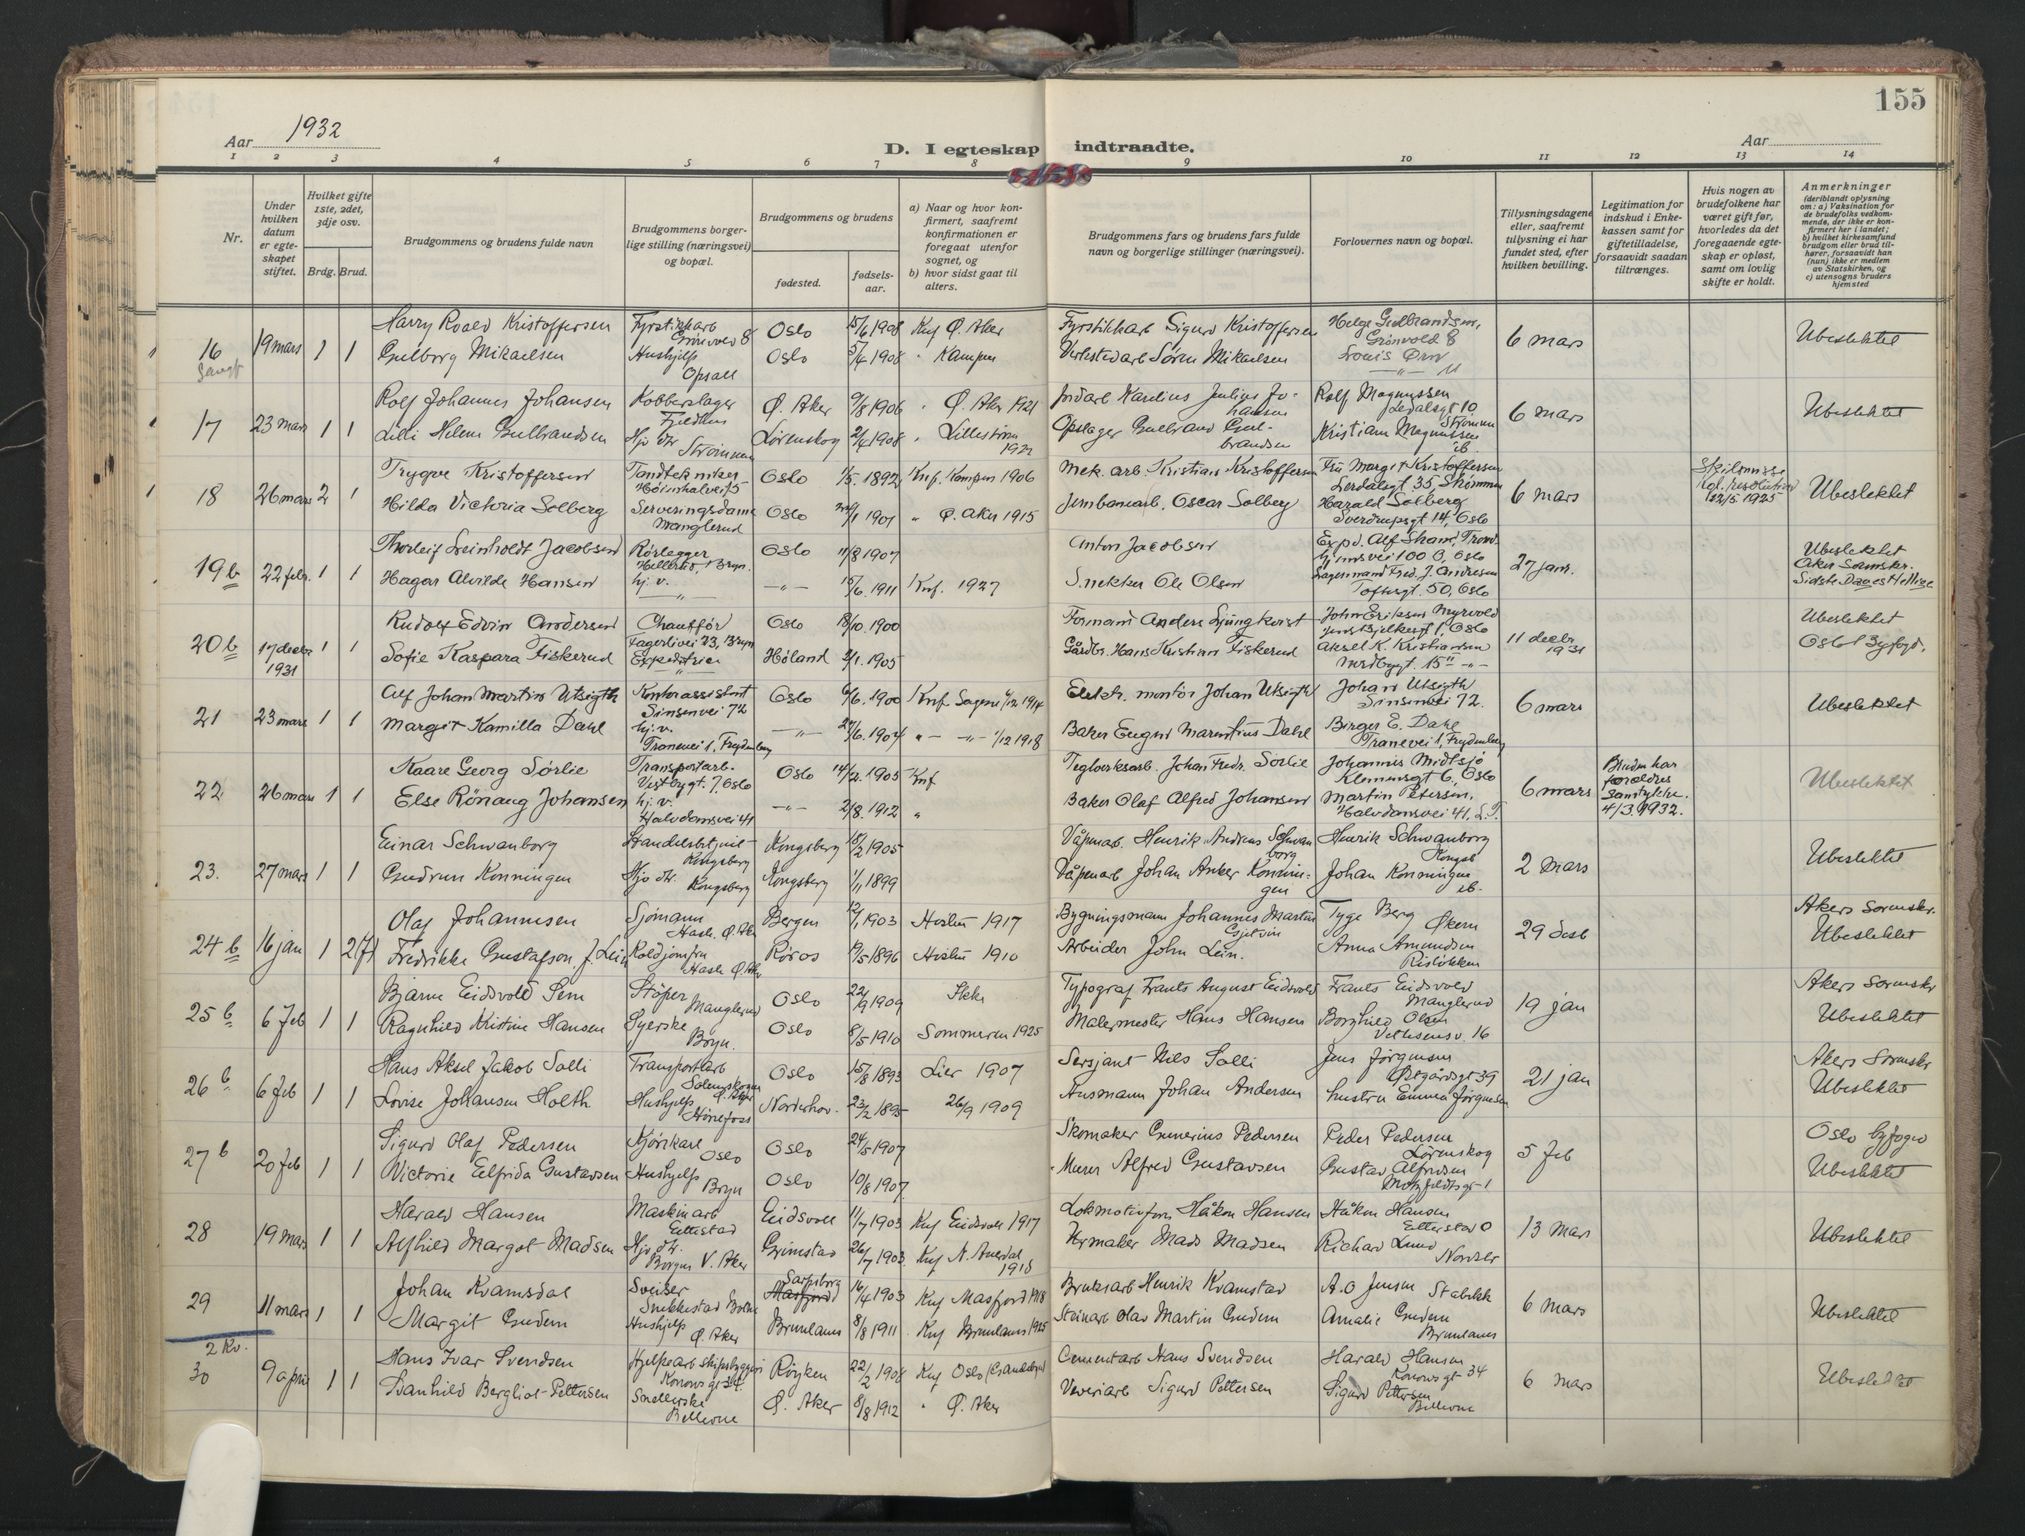 155
Aar 1932
D. I egteskap indtraadte.
Aar
1 2 3 4 5 6 7 8 9 10 11 12 13 14
Nr.
Under hvilken datum er egteskapet stiftet.
Hvilket gifte 1ste, 2det, 3dje osv.
Brdg. Brud.
Brudgommens og brudens fulde navn
Brudgommens borgerlige stilling (næringsvei) og bopæl.
Brudgommens og brudens
fødested.
fødselsaar.
a) Naar og hvor konfirmert, saafremt konfirmationen er foregaat utenfor sognet, og
b) hvor sidst gaat til alters.
Brudgommens fars og brudens fars fulde navn og borgerlige stillinger (næringsvei).
Forlovernes navn og bopæl.
Tillysningsdagene eller, saafremt tillysning ei har fundet sted, efter hvilken bevilling.
Legitimation for indskud i Enkekassen samt for giftetilladelse, forsaavidt saadan tiltrænges.
Hvis nogen av brudefolkene har været gift før, hvorledes da det foregaaende egteskap er opløst, samt om lovlig skifte er holdt.
Anmerkninger (deriblandt oplysning om: a) Vaksination for de brudefolks vedkommende, der ikke er konfirmert her i landet; b) hvilket kirkesamfund brudgom eller brud tilhører, forsaavidt han (hun) ikke er medlem av Statskirken, og c) utensogns bruders hjemsted
16 19 mars 1 1 Harry Roald Kristoffersen Fyrstikkarb Grønvold 8 Oslo 15/6 1908 Knf Ø. Aker Fyrstikkarb Sigurd Kristoffersen Helge Gulbrandsen, Grønvold 8 6 mars Ubeslektet
Gulborg Mikaelsen Hushjelp Opsall Oslo 5/4 1908 " Kampen Verkstedarb Søren Mikaelsen
17 23 mars 1 1 Rolf Johannes Johansen Kobberslager Ø. Aker 9/8 1906 " Ø. Aker 1921 Jordarb Karelius Julius Johansen Rolf Magnussen Strømmen 6 mars Ubeslektet
Lilli Helene Gulbrandsen Hjv. dtr. Strømmen Lørenskog 2/4 1908 " Lillestrøm 1922 Opslager Gulbrand Gulbrandsen Kristian Magnussen ib.
18 26 mars 2 1 Trygve Kristoffersen Tandtekniker Oslo 1/5 1892 Knf. Kampen 1906 Mek. arb Kristian Kristoffersen Fru Margit Kristoffersen Lerdalsgt 35, Strømmen 6 mars Skilsmisse Kgl. resolution 12/5 1925 Ubeslektet
Hilda Victoria Solberg Serveringsdame Manglerud Oslo 1901 " Ø. Aker 1915 Jernbanearb. Oscar Solberg Harald Solberg Sverdrupsgt 14, Oslo
19 b 22 febr. 1 1 Thorleif Leinholdt Jacobsen Rørlegger Bryn. Oslo 11/8 1907 Anton Jacobsen 27 janr. Ubeslektet Aker Sorenskr.
Hagar Alvilde Hansen hj. v. -"- 15/6. 1911 Knf. 1927 Snekker Ole Olsen Lagermand Fred. J. Andresen Toftesgt. 50, Oslo Sidste Dages Hellige
20 b 17 decbr 1931 1 1 Rudolf Edvin Andersen Chauffør Fagerlivei 23, Bryn Oslo 18/10. 1900 Formann Anders Ljungkvist John Eriksen Myrvold 11 decbr 1931 Ubeslektet
Sofie Kaspara Fiskerud Expeditrice Høland 2/1. 1905 Gårdbr. Hans Kristian Fiskerud Aksel K. Kristiansen Oslo Byfogd.
21 23 mars 1 1 Alf Johan Martin Utsigth Kontorassistent Sinsenvei 72 Oslo 6/6. 1900 Knf. Sagene 1914 Elektr. montør Johan Utsigth Johan Utsigth Sinsenvei 72. 6 mars Ubeslektet
Margit Kamilla Dahl hj. v. Tranevei 1, Frydenberg -"- 27/6. 1904 " -"- 1/12 1918 Baker Eugen Marentius Dahl Birger E. Dahl Tranevei 1, Frydenberg
22 26 mars 1 1 Kaare Georg Sørlie Transportarb. Vestbygt. 7, Oslo Oslo 14/2. 1905 Knf Teglverksarb. Johan Fredr. Sørlie Johannes Midtsjø Klemensgt 6, Oslo 6 mars Bruden har forældres samtykke. 4/3. 1932. Ubeslektet
Else Rønaug Johansen hj. v. Halvdansvei 41 -"- 2/8. 1912 " Baker Olaf Alfred Johansen Martin Petersen, Halvdansvei 41, L.T.
23. 27 mars 1 1 Einar Schwanborg Handelsbetjent Kongsberg Kongsberg 18/2 1905 Våpenarb. Henrik Andreas Schwanborg Henrik Schwanborg Kongsb 2 mars Ubeslektet
Gudrun Konningen Hjv. dtr. Kongsberg Kongsberg 1/11 1899 Våpenarb Johan Anker Konningen Johan Konningen ib.
24 b 16 jan 1 2(?) Olaf Johannesen Sjømann Hasle. Ø. Aker Bergen 12/1 1903 Haslum 1917 Bygningsmann Johannes Martin Gjelvin Tyge Berg Økern 29 des Akers Sorenskr.
Fredrikke Gustafson f. Lein Hasle Ø. Aker Røros 19/5 1896 Haslum 1910 Arbeider John Lein. Anna Amundsen Risløkken Ubeslektet
25 b 6 Feb 1 1 Bjarne Eidsvold Sem Støper Manglerud Oslo 22/9 1909 Ikke Typograf Frants August Eidsvold Frants Eidsvold Manglerud 19 jan Akers Sorenskr
Ragnhild Kristine Hansen Syerske Bryn. Oslo 8/5 1910 Sommeren 1925 Malermester Hans Hansen Borghild Olsen Vethesensv. 16 Ubeslektet
26 b 6 Feb 1 1 Hans Aksel Jakob Solli Transportarb Oslo 15/8 1893 Lier 1907 Sersjant Nils Solli Jens Jørgensen Østgårdsgt 39 21 jan Akers Sorenskr
Lovise Johansen Holth Hushjelp Hønefoss Norderhov. 23/2 1895 26/9 1909 Husmann Johan Andersen hustru Emma Jørgensen Ubeslektet
27 b 20 Feb 1 1 Sigurd Olaf Pedersen Kjørekarl Oslo Oslo 24/5 1907 Skomaker Gunerius Pedersen Peder Pedersen Lørenskog 5 Feb Oslo byfogd
Victoria Elfrida Gustavsen Hushjelp Bryn Oslo 10/8 1907 Murer Alfred Gustavsen Gustav Alfredsen Motzfeldtsgt 1 Ubeslektet
28 19 mars 1 1 Harald Hansen Maskinarb Etterstad Eidsvoll 11/7 1903 Knf Eidsvoll 1917 Lokomotivform Håkon Hansen Håkon Hansen Etterstad 13 mars Ubeslektet
Alfhild Margot Madsen Hjv. dtr. Borgen V. Aker Grimstad 26/7 1903 Knf N. Aurdal 1918 Urmaker Mads Madsen Richard Lund
29 11 mars 1 1 Johan Kvamsdal Sveiser Sarpsborg Masfjord 16/4 1903 Knf Masfjord 1918 Bruksarb Henrik Kvamstad A.O Jensen Stabekk 6 mars Ubeslektet
Margit Gudem Hushjelp Ø. Aker Brunlanes 8/8 1911 Knf Brunlanes 1925 Steinarb Olav Martin Gudem Amalie Gudem Brunlanes
2 Kv.
30 9 april 1 1 Hans Ivar Svendsen Hjelpearb skipsbyggeri Konowsgt 34. Røyken 22/2 1908 Knf Oslo Cementarb Hans Svendsen Harald Hansen Konowsgt 34 6 mars Ubeslektet
Svanhild Bergliot Pettersen Snellerske Bellevue Ø. Aker 8/8 1912 " Ø. Aker Veveriarb Sigurd Pettersen Sigurd Pettersen Bellevue